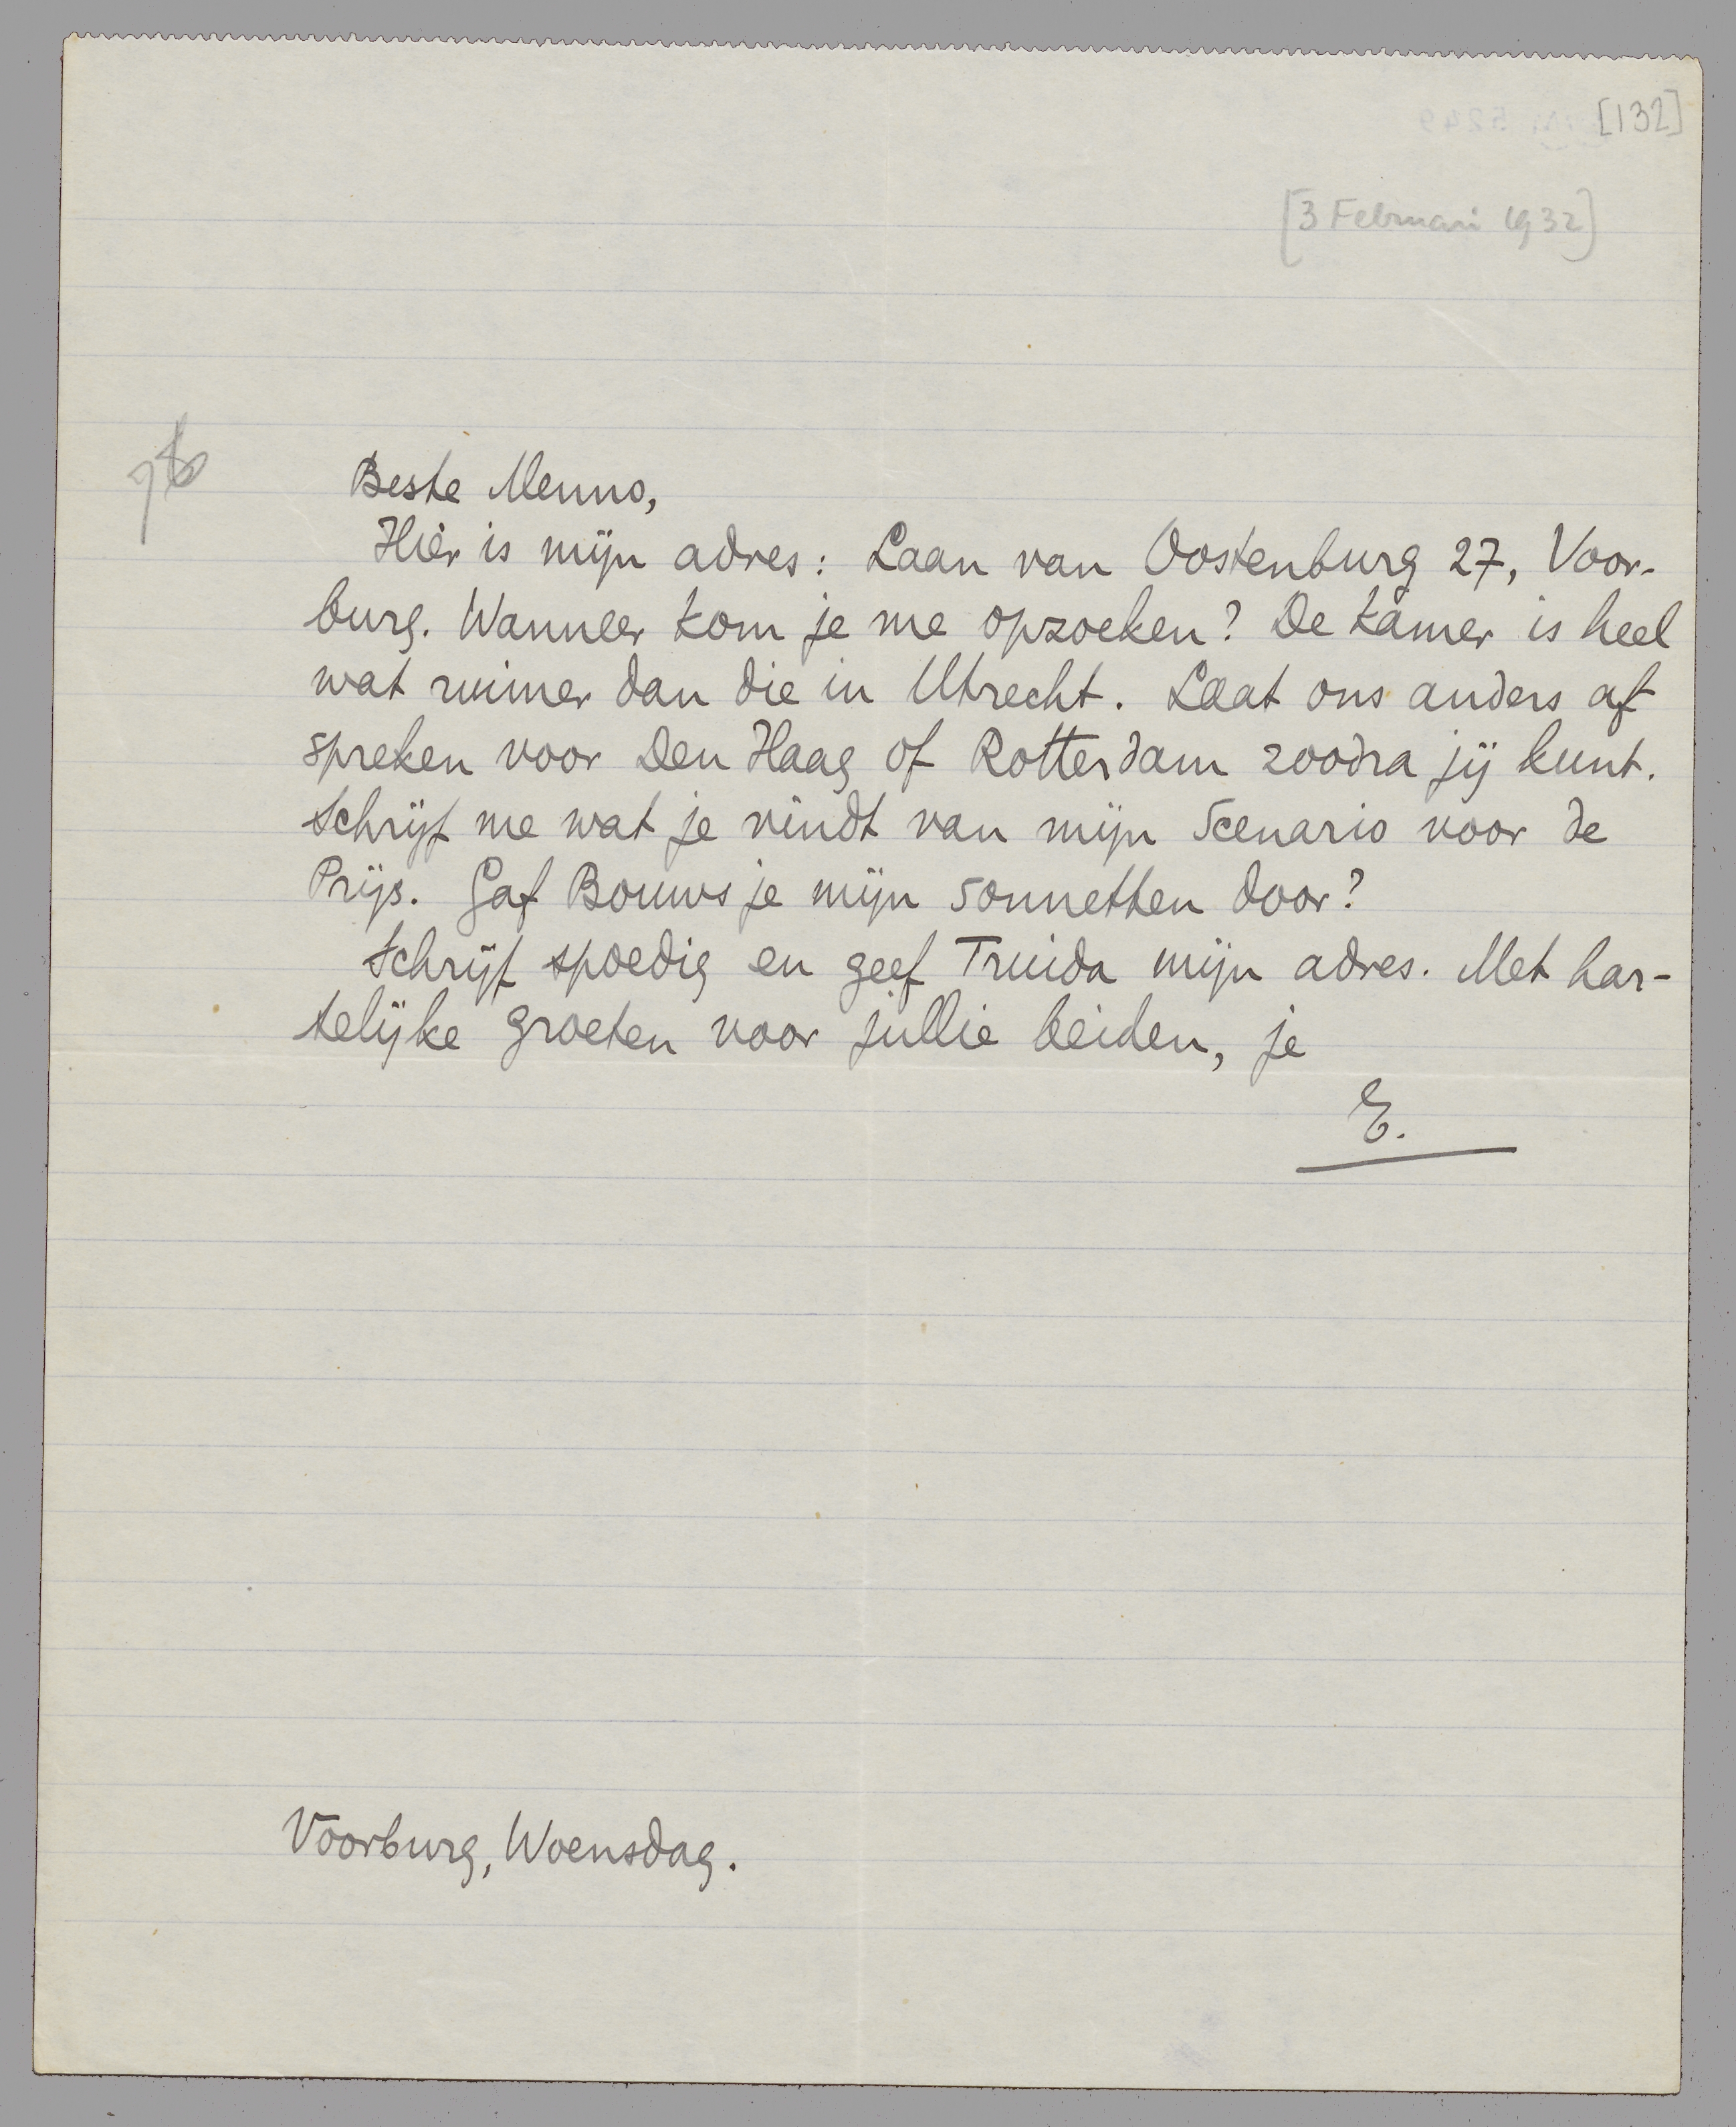 [132]
[3 Februari 1932]
Beste Menno,
Hier is mijn adres: Laan van Oostenburg 27, Voor-
burg. Wanneer kom je me opzoeken? De kamer is heel
wat ruimer dan die in Utrecht. Laat ons anders af
spreken voor Den Haag of Rotterdam zoodra jij kunt.
Schrijf me wat je vindt van mijn Scenario voor de
Prijs. Gaf Bouws je mijn sonnetten door?
Schrijf spoedig en geef Truida mijn adres. Met har-
telijke groeten voor jullie beiden, je
E.
Voorburg, Woensdag.